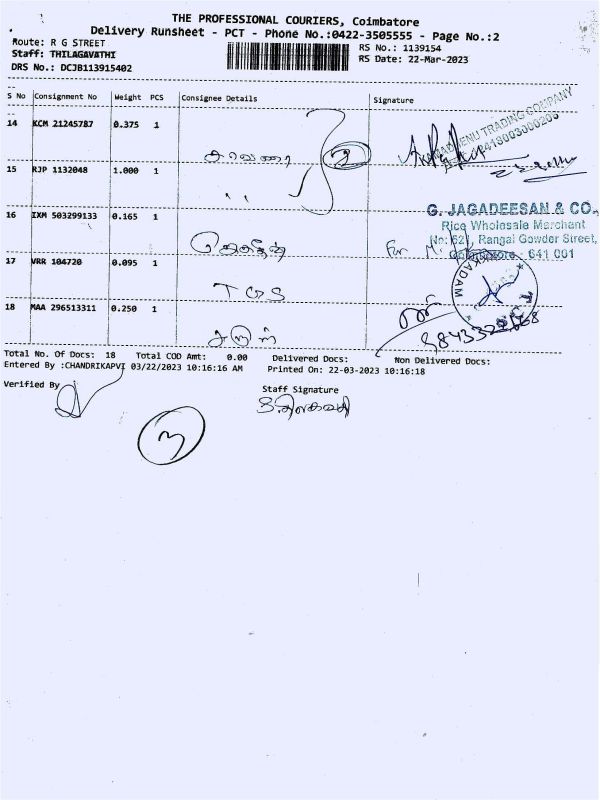 THE PROFESSIONAL COURIERS, Coimbatore
Delivery Runsheet - PCT - Phone No.:0422-3505555 - Page No.:2
Route: R G STREET
RS No.: 1139154
Staff: THILAGAVATHI
RS Date: 22-Mar-2023
DRS No.: DCJB113915402
S No Consignment No Weight PCS Consignee Details Signature
14 KCM 21245787 0.375 1
TRADING COMPANY
15 RJP 1132048 1.000 1
" "
16 IXM 503299133 0.165 1
G. JAGADEESAN & CO.,
Rice Wholesale Merchant
No: 62, Rangai Gowder Street,
Coimbatore - 641 001
For
17 VRR 104720 0.095 1
TGS
18 MAA 296513311 0.250 1
Total No. Of Docs: 18 Total COD Amt: 0.00 Delivered Docs: Non Delivered Docs:
Entered By :CHANDRIKAPVI 03/22/2023 10:16:16 AM Printed On: 22-03-2023 10:16:18
Verified By
Staff Signature